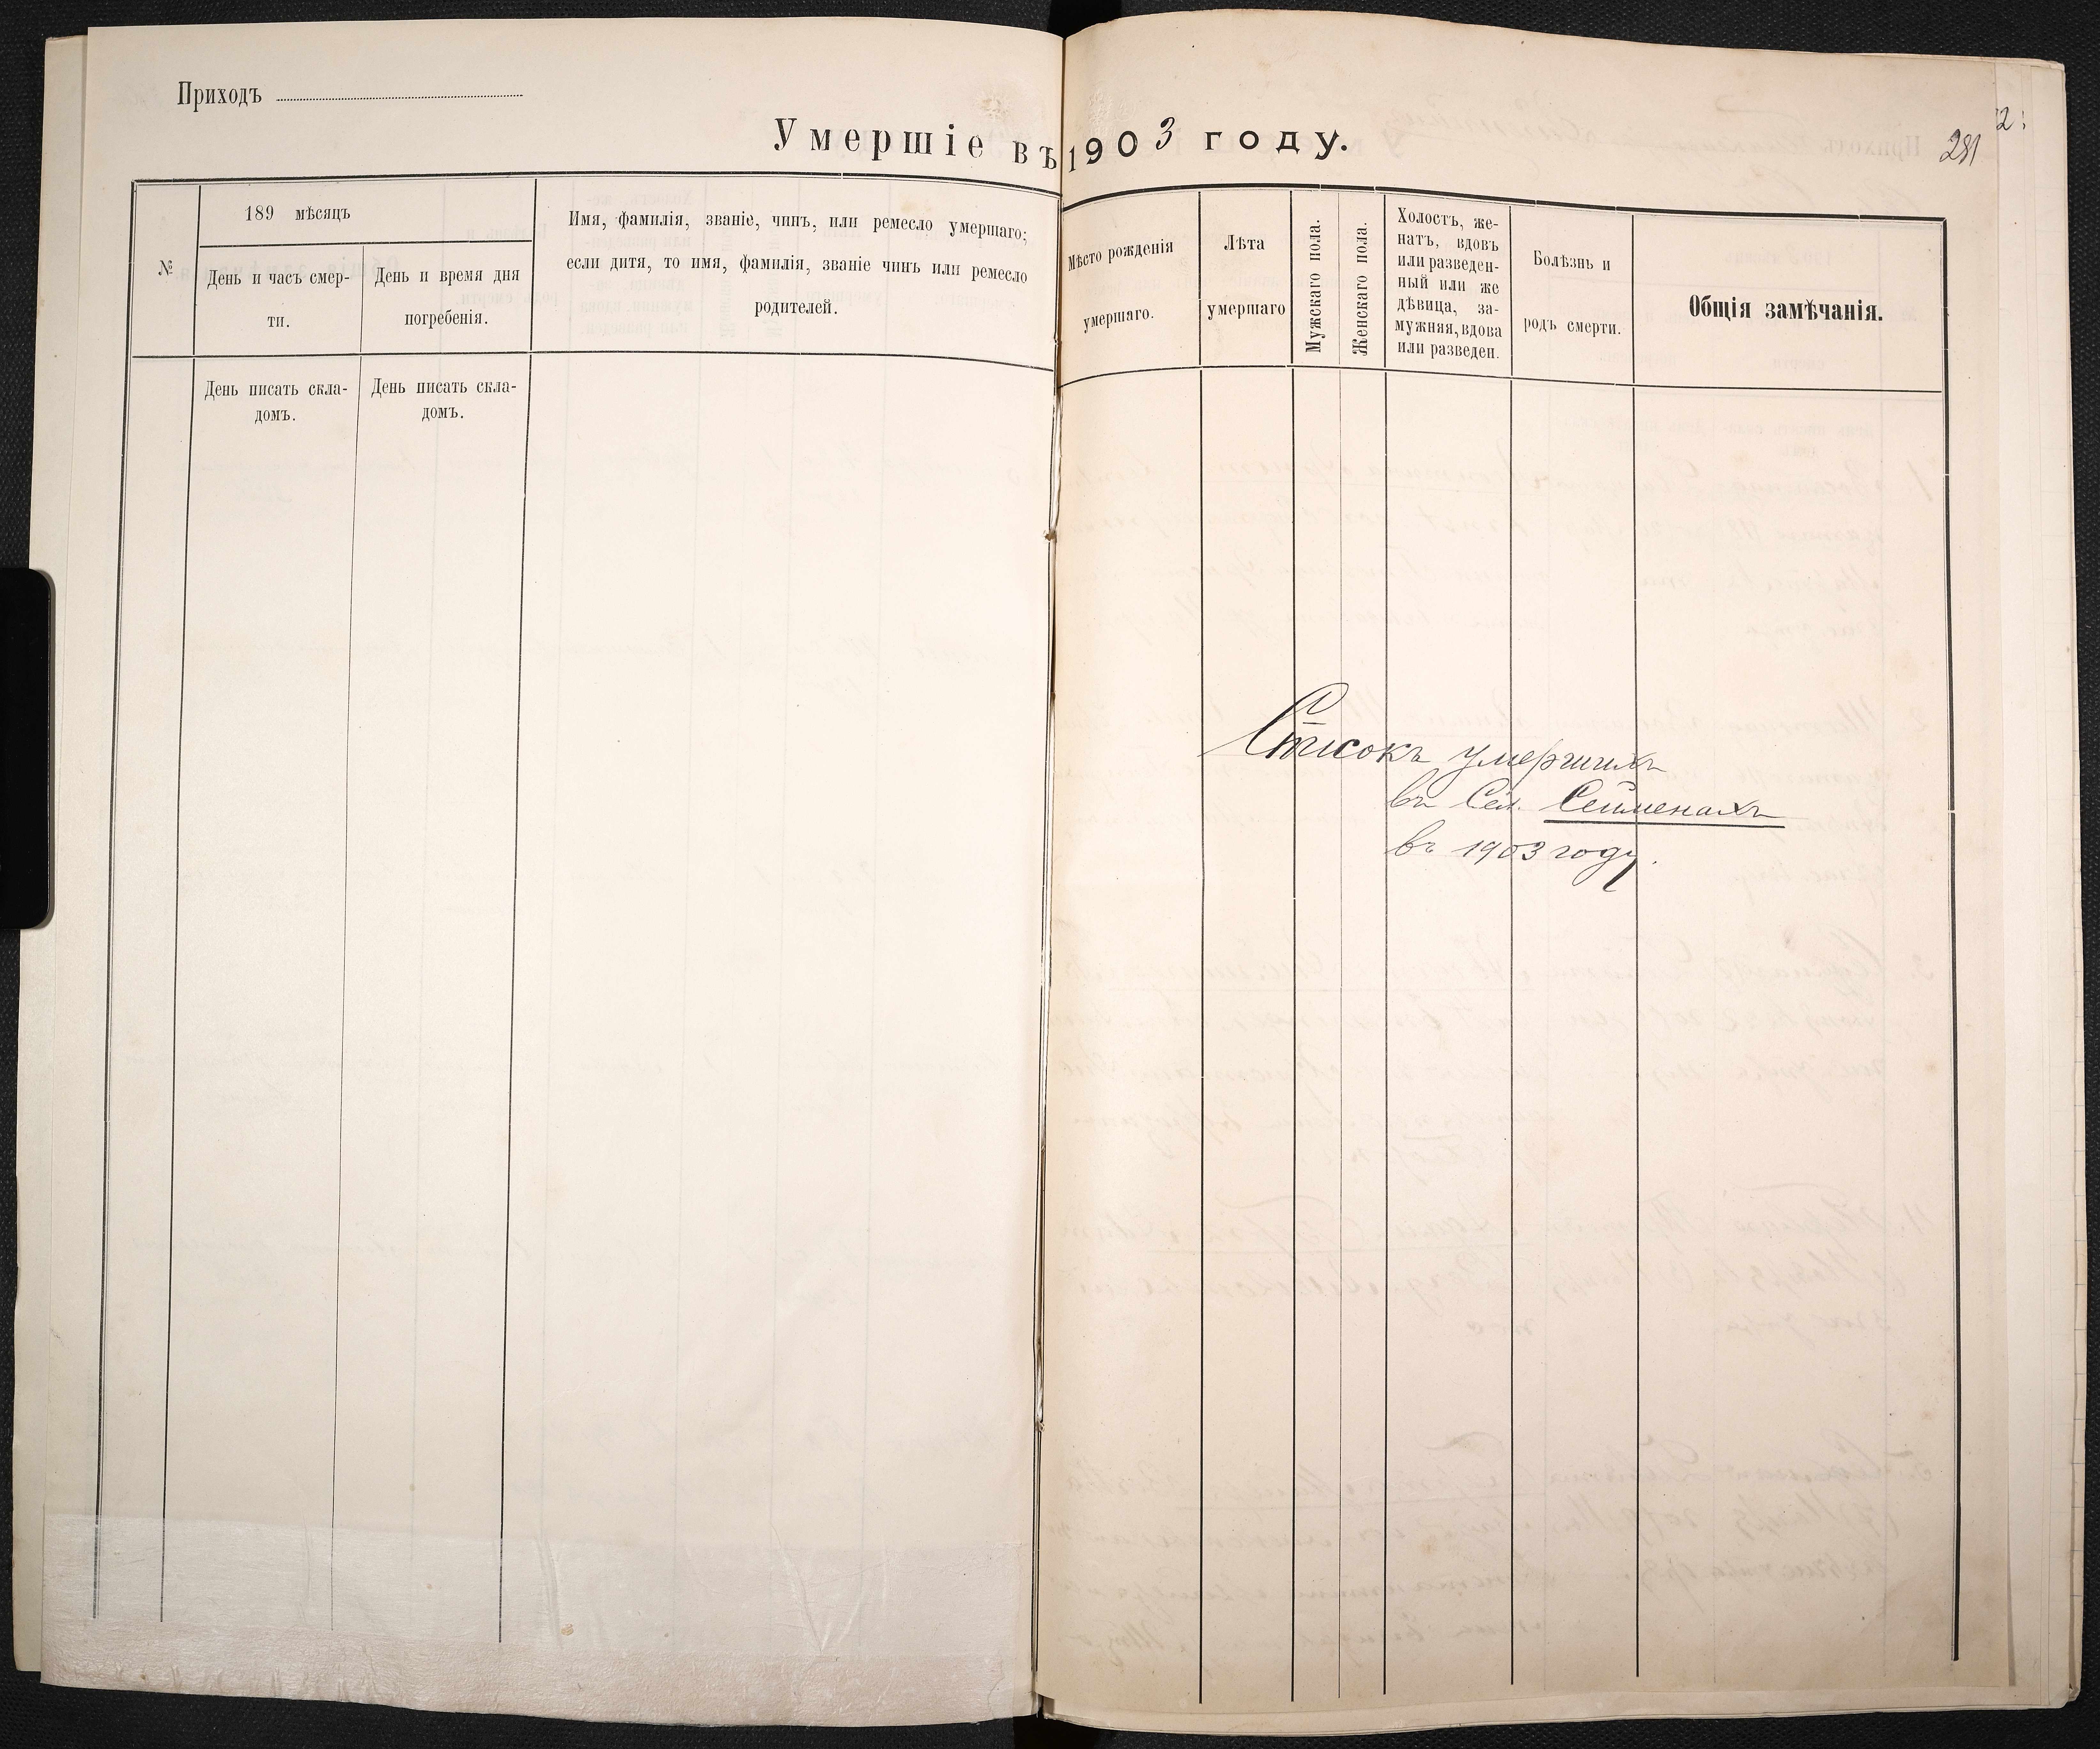 Приходъ
Умершіе въ 1903 году.
281
№
189 мѣсяцъ
День и часъ смер-
ти.
День и время дня
погребенія.
Имя, фамилія, званіе, чинъ, или ремесло умершаго;
если дитя, то имя, фамилія, званіе чинъ или ремесло
родителей.
Мѣсто рожденія
умершаго.
Лѣта
умершаго
Мужскаго пола.
Женскаго пола.
Холостъ, же-
натъ, вдовъ
или разведен-
ный или же
дѣвица, за-
мужняя, вдова
или разведен.
Болѣзнь и
родъ смерти.
Общія замѣчанія.
День писать скла-
домъ.
День писать скла-
домъ.
Списокъ умершихъ
въ Сел. Сейменахъ
въ 1903 году.